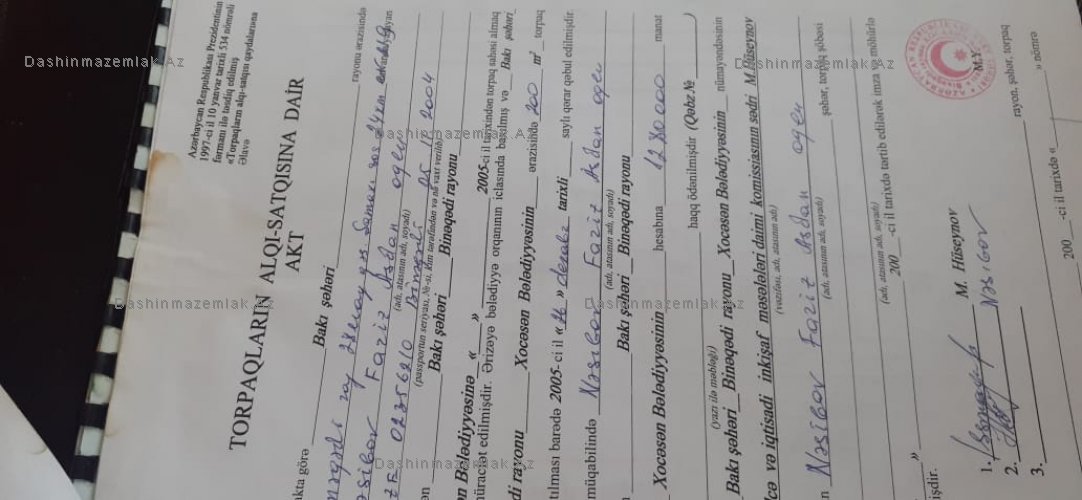 Azərbaycan Respublikası Prezidentinin
1997-ci il 10 yanvar tarixli 534 nömrəli
fərmanı ilə təsdiq edilmiş
«Torpaqların alqı-satqısı qaydaları»na
Əlavə
TORPAQLARIN ALQI-SATQISINA DAİR
AKT
akta görə Bakı şəhəri rayonu ərazisində
Faziz Aslan oğlu
(adı, atasının adı, soyadı)
02356210 Binəqədi 05 11 2004
(passportun seriyası, №-si, kim tərəfindən və nə vaxt verilib)
Bakı şəhəri Binəqədi rayonu
Bələdiyyəsinə «__» 2005-ci il tarixində torpaq sahəsi almaq
müraciət edilmişdir. Ərizəyə bələdiyyə orqanının iclasında baxılmış və Bakı şəhəri
rayonu Xocəsən Bələdiyyəsinin ərazisində 200 m² torpaq
barədə 2005-ci il «26» dekabr tarixli saylı qərar qəbul edilmişdir.
müqabilində Nəsibov Faziz Aslan oğlu
(adı, atasının adı, soyadı)
Bakı şəhəri Binəqədi rayonu
Xocəsən Bələdiyyəsinin hesabına 1280000 manat
haqq ödənilmişdir (Qəbz №
(yazı ilə məbləği)
Bakı şəhəri Binəqədi rayonu Xocəsən Bələdiyyəsinin nümayəndəsinin
və iqtisadi inkişaf məsələləri daimi komissiasının sədri M.Hüseynov
(vəzifəsi, adı, atasının adı)
Nəsibov Faziz Aslan oğlu şəhər, torpaq şöbəsi
(adı, atasının adı, soyadı)
200__-ci il tarixdə tərtib edilərək imza və möhürlə
(adı, atasının adı, soyadı)
M.Y.
1. M. Hüseynov
2. Nəsibov rayon, şəhər, torpaq
3.
200__-ci il tarixdə «__» nömrə
Dashinmazemlak.Az
Dashinmazemlak.Az
Dashinmazemlak.Az
Dashinmazemlak.Az
Dashinmazemlak.Az
Dashinmazemlak.Az
Dashinmazemlak.Az
Dashinmazemlak.Az